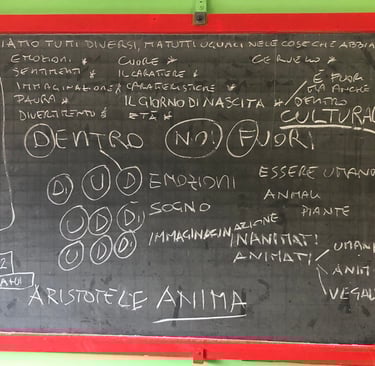 SIAMO TUTTI DIVERSI, MA TUTTI UGUALI NELE COSE CHE ABBIA
EMOZIONI * CUORE * CERVELLO *
SENTIMENTI * IL CARATERE * È FUORI
IMMAGINAZIONE * CARATTERISTICHE * MA ANCHE
PAURA * IL GIORNO DI NASCITA * DENTRO
DIVERTIMENTO * ETÀ * CULTURA
DENTRO NOI FUORI
D U D EMOZIONI ESSERE UMANO
U D D SOGNO ANIMALI
PIANTE
U D D IMMAGINAZIONE INANIMATI
ANIMATI UMANI
ANIM
VEGAL
2
ARISTOTELE ANIMA